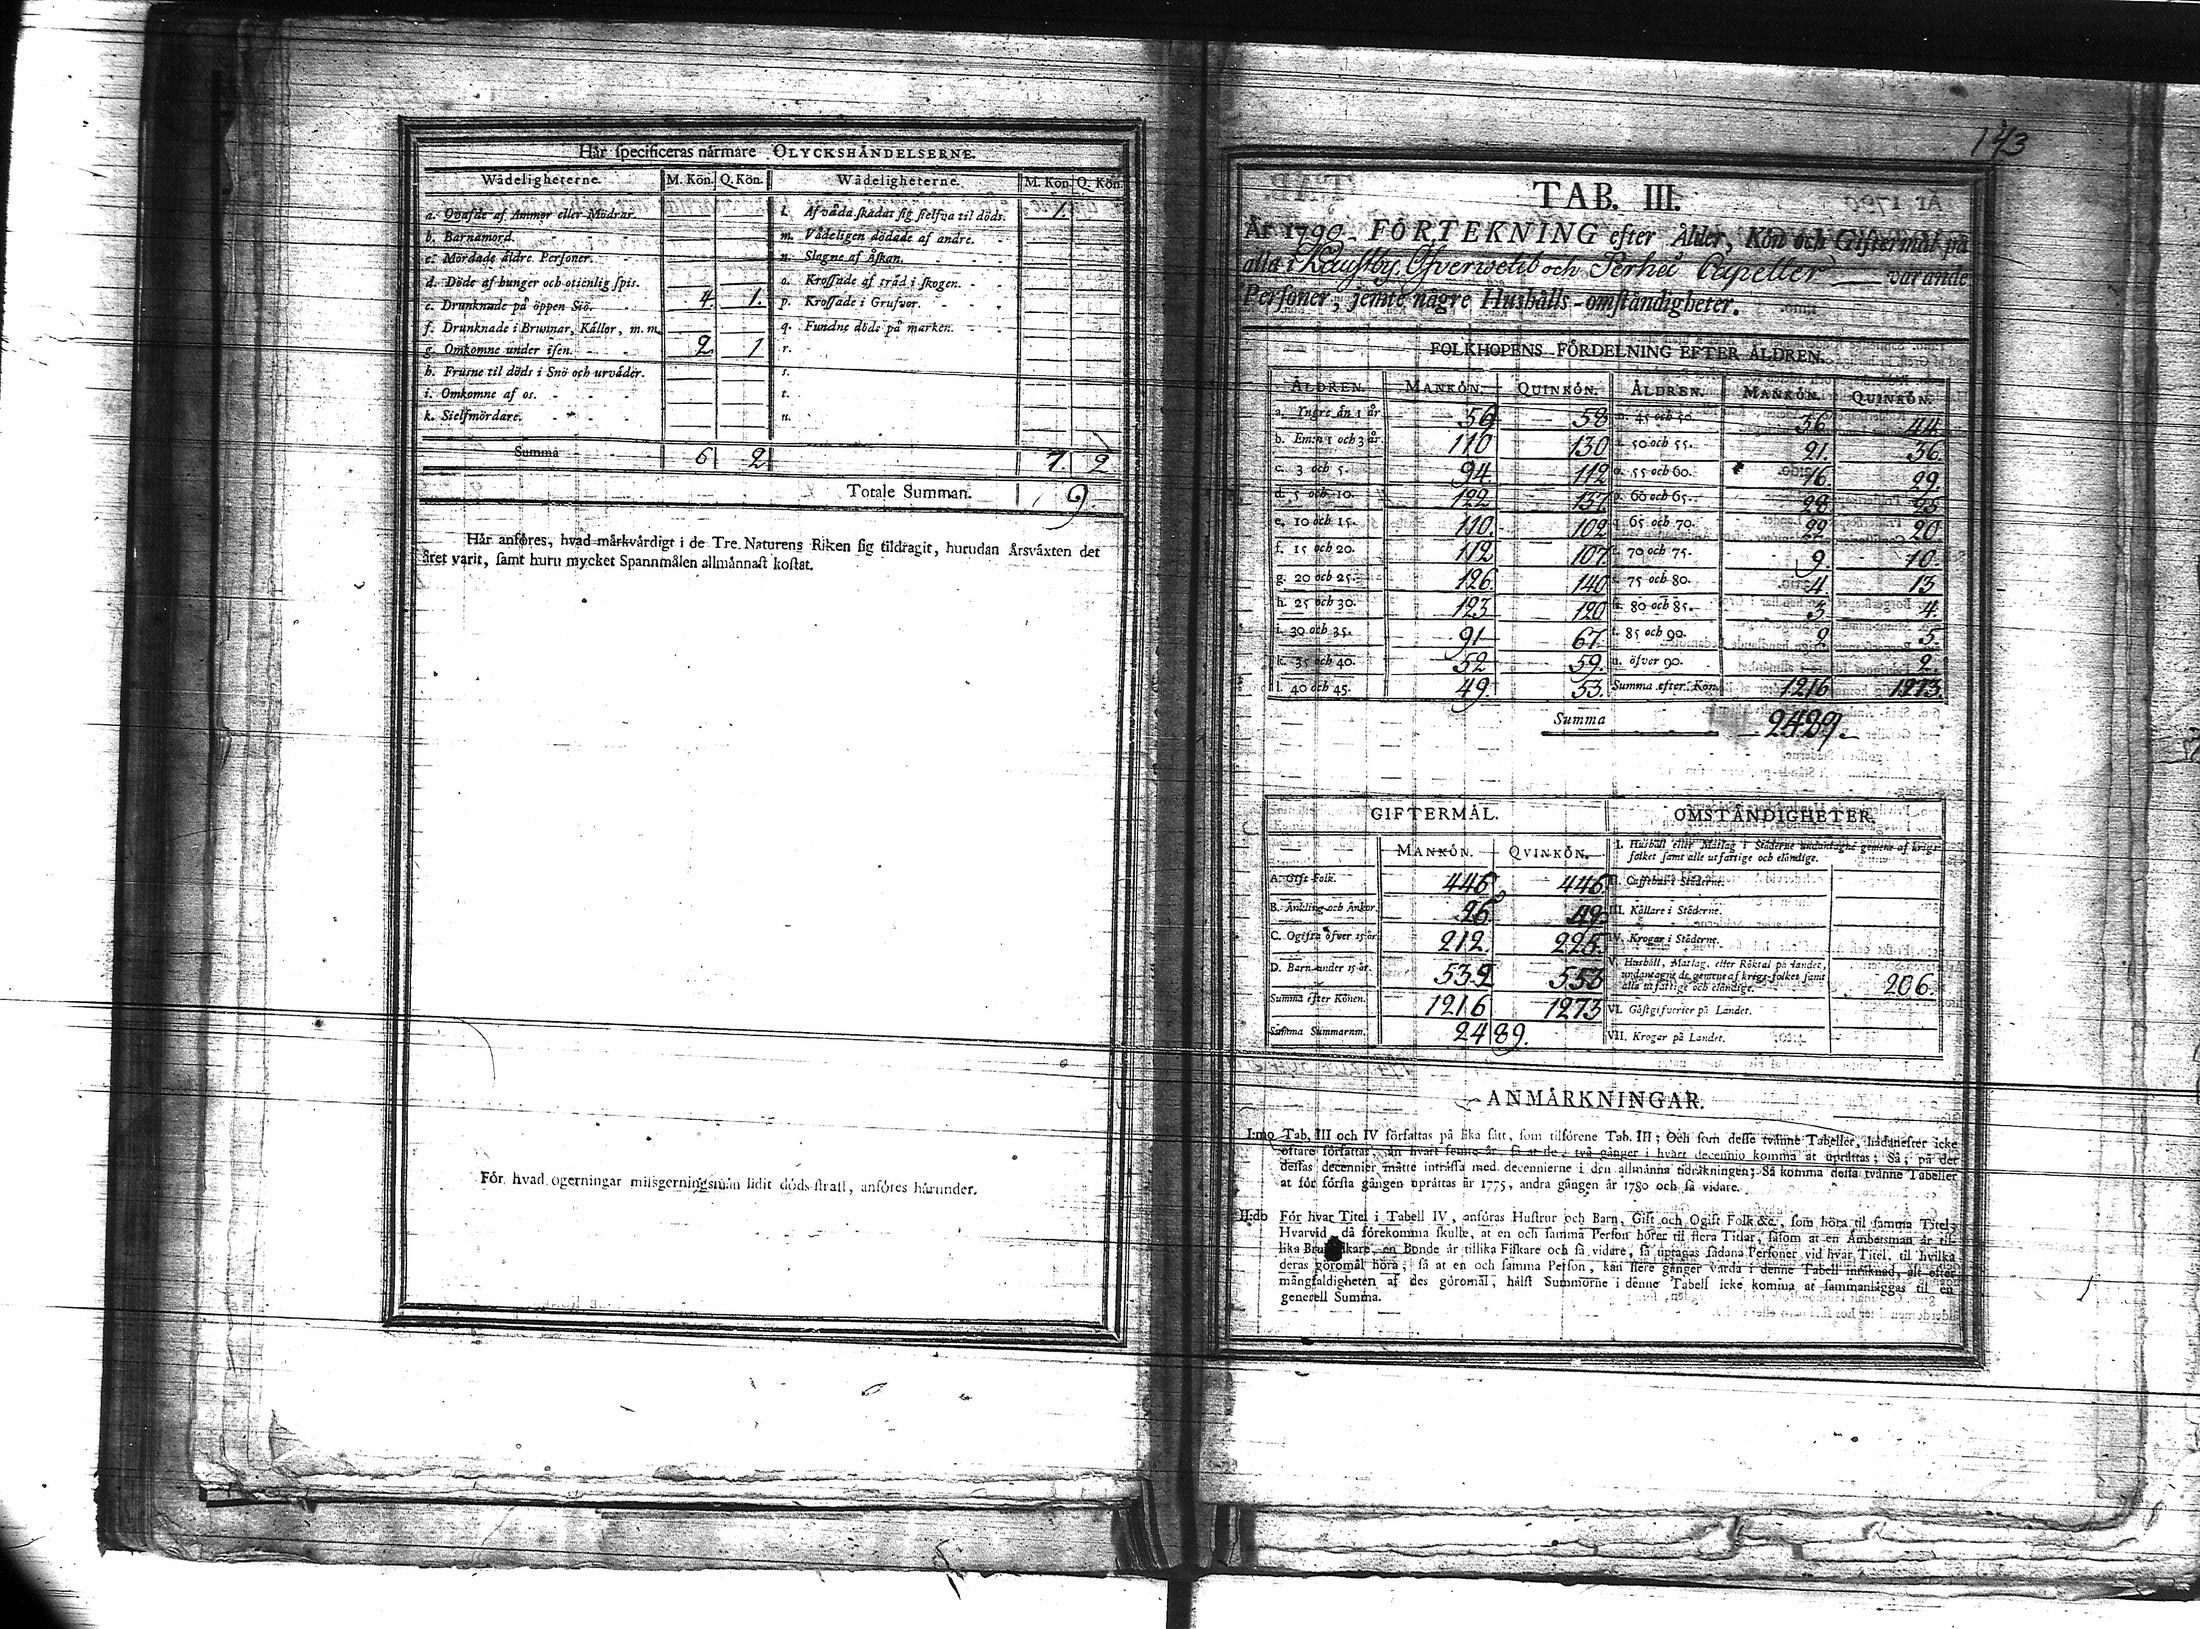 Här specificeras närmare OLYCKSHÄNDELSERNE.
Wådeligheterne. M. Kön. Q. Kön. Wådeligheterne. M. Kön. Q. Kön.
a. Qvafde af Ammor eller Mödrar. l. Af våda skadat sig sielfva til döds. 1.
b. Barnamord. m. Vådeligen dödade af andre.
c. Mördade äldre Personer. n. Slagne af Åskan.
d. Döde af hunger och otienlig spis. o. Krossade af träd i skogen.
e. Drunknade på öppen Siö. 4. 1. p. Krossade i Grufvor.
f. Drunknade i Brunnar, Källor, m. m. q. Fundne döde på marken.
g. Omkomne under isen. 2 1 r.
h. Frusne til döds i Snö och urväder. s.
i. Omkomne af os. t.
k. Sielfmördare. u.
Summa 6 2 7 2
Totale Summan. 9.
Här anföres, hvad märkvärdigt i de Tre Naturens Riken sig tildragit, hurudan Årsväxten det
året varit, samt huru mycket Spannmålen allmännast kostat.
För hvad ogerningar missgerningsmän lidit döds straff, anföres härunder.
143
TAB. III.
År 1790. FÖRTEKNING efter Ålder, Kön och Giftermål på
alla i Kaustby, Öfverwetil och Perho Capeller varande
Personer, jemte någre Hushålls-omständigheter.
FOLKHOPENS FÖRDELNING EFTER ÅLDREN.
ÅLDREN. MANKÖN. QUINKÖN. ÅLDREN. MANKÖN. QUINKÖN.
a. Yngre än 1 år 56 58 m. 45 och 50. 36. 44.
b. Emn 1 och 3 år. 110 130 n. 50 och 55. 21. 36.
c. 3 och 5. 94 112 o. 55 och 60. 16. 29.
d. 5 och 10. 122 157 p. 60 och 65. 28 25
e. 10 och 15. 110. 102 q. 65 och 70. 22 20
f. 15 och 20. 112 107. r. 70 och 75. 9. 10.
g. 20 och 25. 126. 140 s. 75 och 80. 4. 13.
h. 25 och 30. 123 120 80 och 85. 3. 4.
i. 30 och 35. 91 67. t. 85 och 90. 2. 5.
k. 35 och 40. 52 59. u. öfver 90. 2.
l. 40 och 45. 49. 53. Summa efter Kön. 1216 1273.
Summa 2489.
GIFTERMÅL. OMSTÄNDIGHETER.
MANKÖN. QVINKÖN. I. Hushåll eller Matlag i Städerne undantagne gemene af krigs-
folket samt alle utfattige och eländige.
A. Gift Folk. 446 446 II. Caffehus i Städerne.
B. Änkling och Änkor 26 49 III. Källare i Städerne.
C. Ogifta öfver 15 år 212. 225. IV. Krogar i Städerne.
D. Barn under 15 år. 532 553 V. Hushåll, Matlag, eller Röktal på landet,
undantagne de gemene af krigs-folket samt
alla utfattige och eländige. 206.
Summa efter Könen. 1216 1273 VI. Gästgifverier på Landet.
Summa Summarum. 2489. VII. Krogar på Landet.
ANMÄRKNINGAR.
I:mo Tab. III och IV författas på lika sätt, som tilförene Tab. III; Och som desse tvänne Tabeller, hädanefter icke
oftare författas, än hvart femte år, så at de två gånger i hvart decennio komma at uprättas; Så, på det
dessas decennier måtte inträffa med decennierne i den allmänna tidräkningen; Så komma dessa tvänne Tabeller
at för första gången uprättas år 1775, andra gången år 1780 och så vidare.
II:do För hvar Titel i Tabell IV, anföras Hustrur och Barn, Gift och Ogift Folk &c., som höra til samma Titel;
Hvarvid då förekomma skulle, at en och samma Person hörer til flera Titlar, såsom at en Ämbetsman är til-
lika Bruksidkare, en Bonde är tillika Fiskare och så vidare, så uptagas sådana Personer vid hvar Titel, til hvilka
deras göromål höra; så at en och samma Person, kan flere gånger varda i denne Tabell inräknad, alt efter
mångfaldigheten af des göromål, hälst Summorne i denne Tabell icke komma at sammanläggas til en
generell Summa.